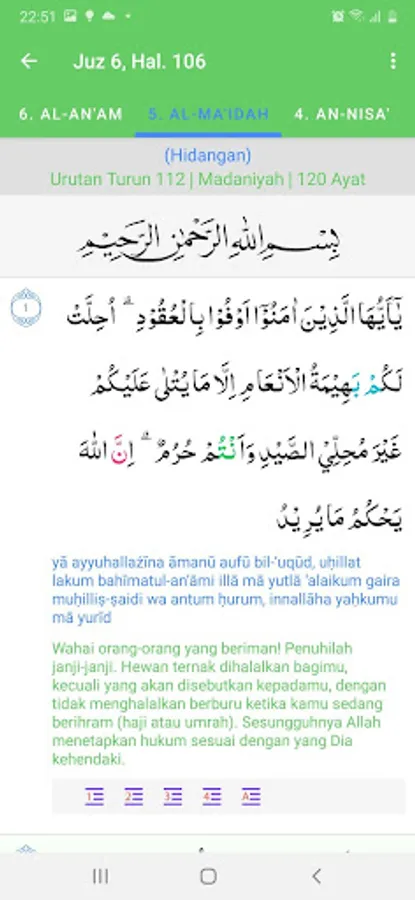 22:51
Juz 6, Hal. 106
6. AL-AN'AM 5. AL-MA'IDAH 4. AN-NISA'
(Hidangan)
Urutan Turun 112 | Madaniyah | 120 Ayat
بِسْمِ اللّٰهِ الرَّحْمٰنِ الرَّحِيْمِ
١
يٰٓاَيُّهَا الَّذِيْنَ اٰمَنُوْٓا اَوْفُوْا بِالْعُقُوْدِۗ اُحِلَّتْ
لَكُمْ بَهِيْمَةُ الْاَنْعَامِ اِلَّا مَا يُتْلٰى عَلَيْكُمْ
غَيْرَ مُحِلِّى الصَّيْدِ وَاَنْتُمْ حُرُمٌۗ اِنَّ اللّٰهَ
يَحْكُمُ مَا يُرِيْدُ
yā ayyuhallażīna āmanū aufū bil-'uqūd, uḥillat
lakum bahīmatul-an'āmi illā mā yutlā 'alaikum gaira
muḥilliṣ-ṣaidi wa antum ḥurum, innallāha yaḥkumu
mā yurīd
Wahai orang-orang yang beriman! Penuhilah
janji-janji. Hewan ternak dihalalkan bagimu,
kecuali yang akan disebutkan kepadamu, dengan
tidak menghalalkan berburu ketika kamu sedang
berihram (haji atau umrah). Sesungguhnya Allah
menetapkan hukum sesuai dengan yang Dia
kehendaki.
1 2 3 4 A